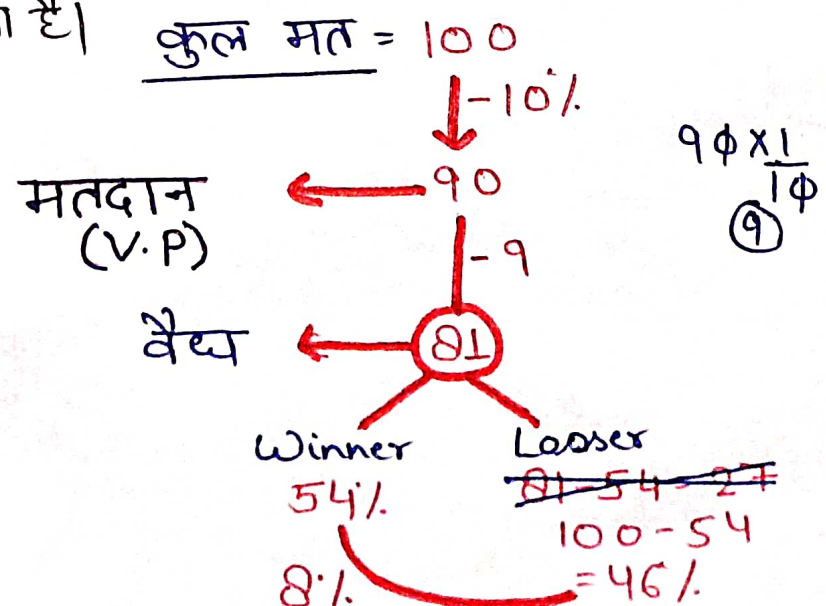 ा है।
कुल मत = 100
-10%
90
मतदान
(V.P)
90 x 1
10
9
-9
वैध
81
Winner
Looser
54%
81 - 54 = 27
100 - 54
= 46%
8%